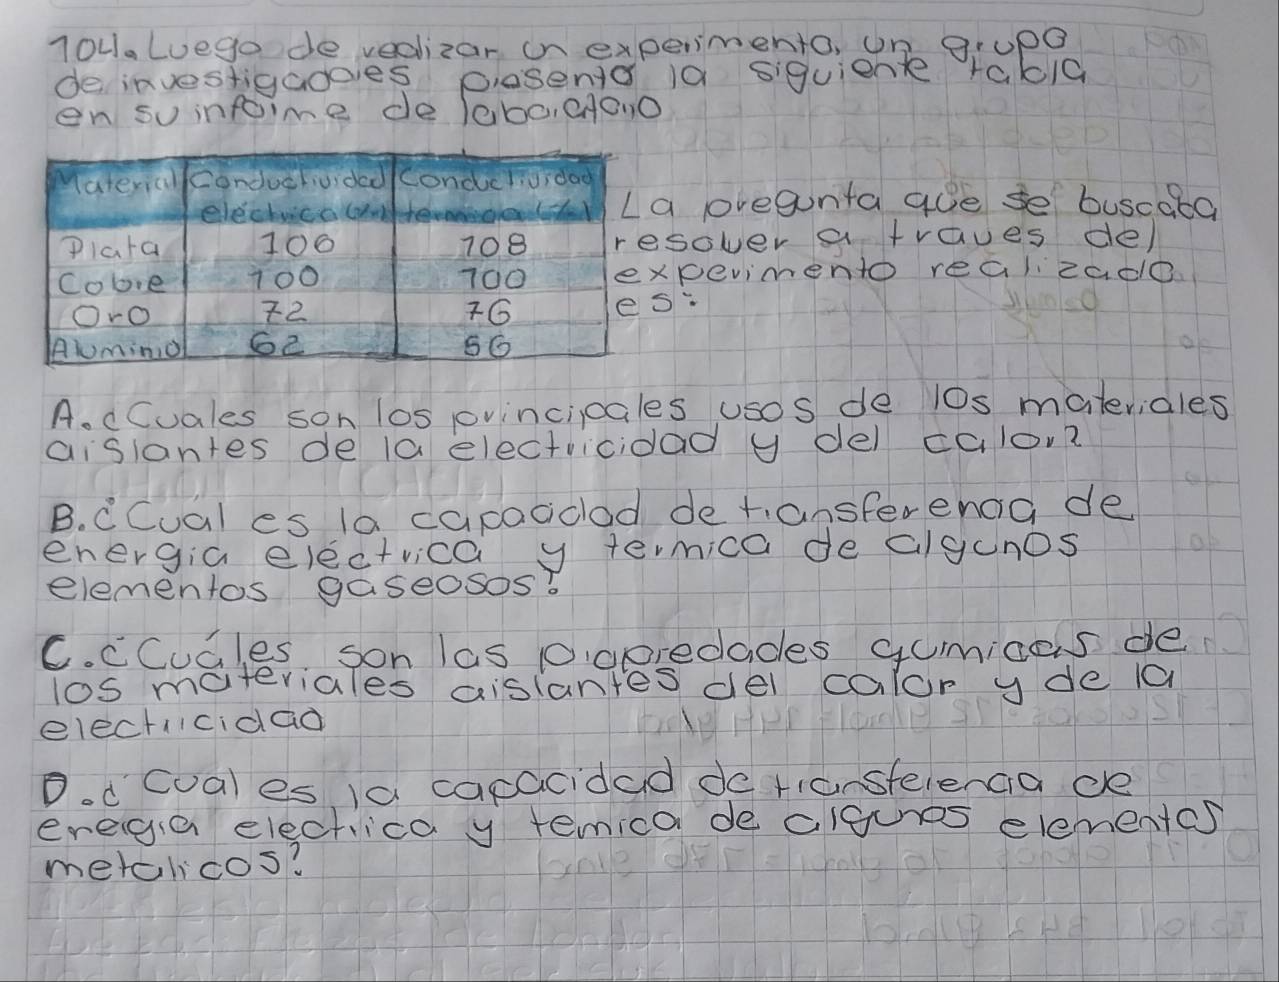 104. Luego de realizar un experimento, un grupo
de investigadores presento la siguiente tabla
en su informe de laboratorio
Material Conductividad Conductividad
eléctrica (%) termica (%)
Plata 106 108
Cobre 100 100
Oro 72 76
Aluminio 62 56
La pregunta que se buscaba
resolver a traves del
experimento realizado
es:
A. ¿Cuales son los principales usos de los materiales
aislantes de la electricidad y del calor?
B. ¿Cual es la capacidad de transferencia de
energia eléctrica y termica de algunos
elementos gaseosos?
C. ¿Cuáles son las propiedades quimicas de
los materiales aislantes del calor y de la
electricidad
D. ¿Cual es la capacidad de transferencia de
energia electrica y temica de algunos elementos
metalicos?